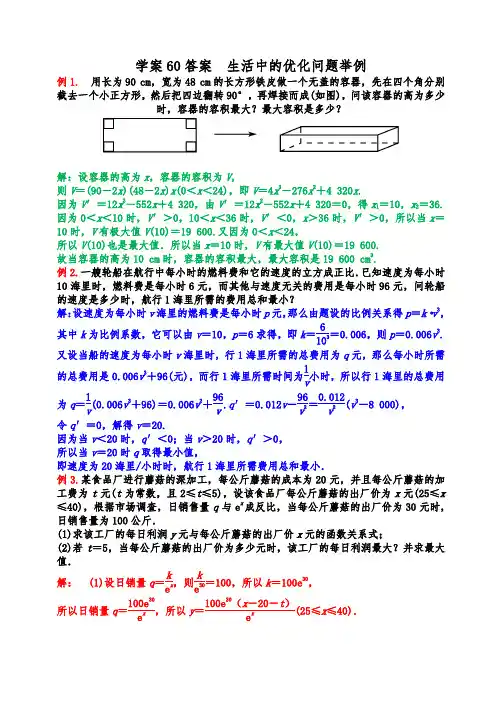 学案60答案　生活中的优化问题举例
例1.　用长为90 cm，宽为48 cm的长方形铁皮做一个无盖的容器，先在四个角分别
截去一个小正方形，然后把四边翻转90°，再焊接而成(如图)，问该容器的高为多少
时，容器的容积最大？最大容积是多少？
解：设容器的高为x，容器的容积为V，
则V＝(90－2x)(48－2x)x(0＜x＜24)，即V＝4x³－276x²＋4 320x.
因为V′＝12x²－552x＋4 320，由V′＝12x²－552x＋4 320＝0，得x₁＝10，x₂＝36.
因为0＜x＜10时，V′＞0，10＜x＜36时，V′＜0，x＞36时，V′＞0，所以当x＝
10时，V有极大值V(10)＝19 600.又因为0＜x＜24，
所以V(10)也是最大值．所以当x＝10时，V有最大值V(10)＝19 600.
故当容器的高为10 cm时，容器的容积最大，最大容积是19 600 cm³.
例2.一艘轮船在航行中每小时的燃料费和它的速度的立方成正比．已知速度为每小时
10海里时，燃料费是每小时6元，而其他与速度无关的费用是每小时96元，问轮船
的速度是多少时，航行1海里所需的费用总和最小？
解：设速度为每小时v海里的燃料费是每小时p元，那么由题设的比例关系得p＝k·v³，
其中k为比例系数，它可以由v＝10，p＝6求得，即k＝6/10³＝0.006，则p＝0.006v³.
又设当船的速度为每小时v海里时，行1海里所需的总费用为q元，那么每小时所需
的总费用是0.006v³＋96(元)，而行1海里所需时间为1/v小时，所以行1海里的总费用
为q＝1/v(0.006v³＋96)＝0.006v²＋96/v.q′＝0.012v－96/v²＝0.012/v²(v³－8 000)，
令q′＝0，解得v＝20.
因为当v＜20时，q′＜0；当v＞20时，q′＞0，
所以当v＝20时q取得最小值，
即速度为20海里/小时时，航行1海里所需费用总和最小．
例3.某食品厂进行蘑菇的深加工，每公斤蘑菇的成本为20元，并且每公斤蘑菇的加
工费为t元(t为常数，且2≤t≤5)，设该食品厂每公斤蘑菇的出厂价为x元(25≤x
≤40)，根据市场调查，日销售量q与eˣ成反比，当每公斤蘑菇的出厂价为30元时，
日销售量为100公斤．
(1)求该工厂的每日利润y元与每公斤蘑菇的出厂价x元的函数关系式；
(2)若t＝5，当每公斤蘑菇的出厂价为多少元时，该工厂的每日利润最大？并求最大
值．
解：　(1)设日销量q＝k/eˣ，则k/e³⁰＝100，所以k＝100e³⁰，
所以日销量q＝100e³⁰/eˣ，所以y＝100e³⁰（x－20－t）/eˣ(25≤x≤40)．